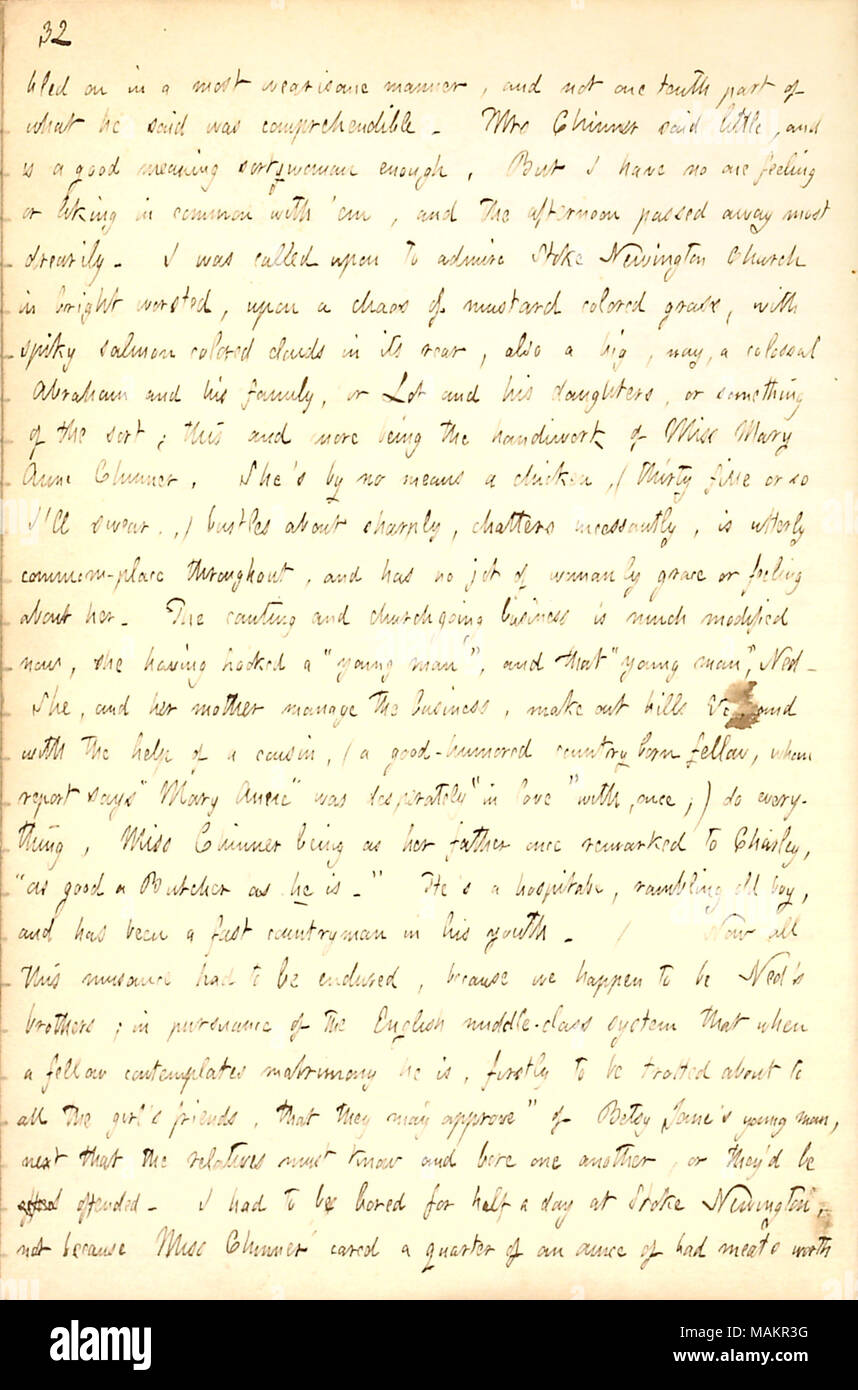 32
bled on in a most wearisome manner, and not one tenth part of
what he said was comprehendible. Mrs Chinner said little, and
is a good meaning sort of woman enough. But I have no one feeling
or liking in common with 'em, and the afternoon passed away most
drearily. I was called upon to admire Stoke Newington Church
in bright worsted, upon a chaos of mustard colored grass, with
spiky salmon colored clouds in its rear, also a big, nay, a colossal
Abraham and his family, or Lot and his daughters, or something
of the sort; this and more being the handiwork of Miss Mary
Anne Chinner. She's by no means a chicken, (thirty five or so
I'll swear.,) bustles about sharply, chatters incessantly, is utterly
common-place throughout, and has no jot of womanly grace or feeling
about her. The canting and churchgoing business is much modified
now, she having hooked a "young man", and that "young man", Ned.
She, and her mother manage the business, make out bills &c, and
with the help of a cousin, (a good-humored country born fellow, whom
report says "Mary Anne" was desperately "in love" with, once;) do every-
thing, Miss Chinner being as her father once remarked to Charley,
"as good a Butcher as he is." He's a hospitable, rambling old boy,
and has been a fast countryman in his youth. / Now all
this nuisance had to be endured, because we happen to be Ned's
brothers; in pursuance of the English middle-class system that when
a fellow contemplates matrimony he is, firstly to be trotted about to
all the girl's friends, that they may approve" of Betsy Jane's young man,
next that the relatives must know and bore one another, or they'd be
offended. I had to be bored for half a day at Stoke Newington,
not because Miss Chinner cared a quarter of an ounce of bad meat's worth
alamy
Image ID: MAKR3G
www.alamy.com